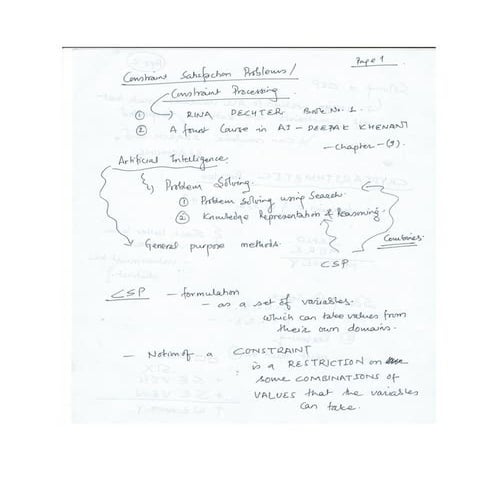 Page 1
Constraint Satisfaction Problems/
Constraint Processing.
① RINA DECHTER Book No. 1.
② A first Course in AI - DEEPAK KHEMANI
- Chapter - (9).
Artificial Intelligence.
Problem Solving.
① Problem Solving using Search.
② Knowledge Representation & Reasoning.
General purpose methods.
Combines
CSP
CSP - formulation
- as a set of variables.
which can take values from
their own domains.
- Notion of a CONSTRAINT
is a RESTRICTION on
some COMBINATIONS of
VALUES that the variables
can take.